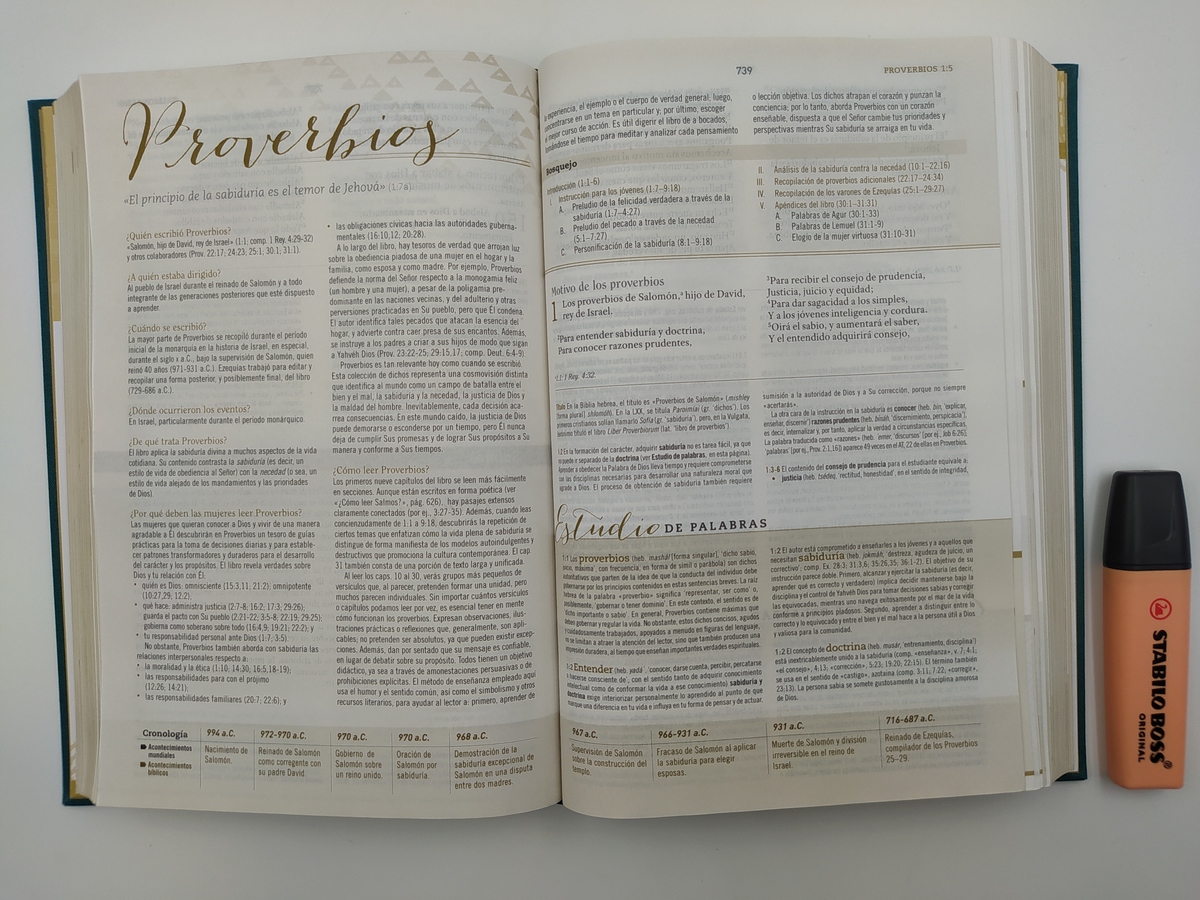 Proverbios
«El principio de la sabiduría es el temor de Jehová» (1:7a)
¿Quién escribió Proverbios?
«Salomón, hijo de David, rey de Israel» (1:1; comp. 1 Rey. 4:29-32)
y otros colaboradores (Prov. 22:17; 24:23; 25:1; 30:1; 31:1).
¿A quién estaba dirigido?
Al pueblo de Israel durante el reinado de Salomón y a todo
integrante de las generaciones posteriores que esté dispuesto
a aprender.
¿Cuándo se escribió?
La mayor parte de Proverbios se recopiló durante el período
inicial de la monarquía en la historia de Israel, en especial,
durante el siglo X A.C., bajo la supervisión de Salomón, quien
reinó 40 años (971-931 A.C.). Ezequías trabajó para editar y
recopilar una forma posterior, y posiblemente final, del libro
(729-686 A.C.).
¿Dónde ocurrieron los eventos?
En Israel, particularmente durante el período monárquico.
¿De qué trata Proverbios?
El libro aplica la sabiduría divina a muchos aspectos de la vida
cotidiana. Su contenido contrasta la sabiduría (es decir, un
estilo de vida de obediencia al Señor) con la necedad (o sea, un
estilo de vida alejado de los mandamientos y las prioridades
de Dios).
¿Por qué deben las mujeres leer Proverbios?
Las mujeres que quieran conocer a Dios y vivir de una manera
agradable a Él descubrirán en Proverbios un tesoro de guías
prácticas para la toma de decisiones diarias y para estable-
cer patrones transformadores y duraderos para el desarrollo
del carácter y los propósitos. El libro revela verdades sobre
Dios y tu relación con Él:
• quién es Dios: omnisciente (15:3,11; 21:2); omnipotente
(10:27,29; 12:2),
• qué hace: administra justicia (2:7-8; 16:2; 17:3; 29:26);
guarda el pacto con Su pueblo (2:21-22; 3:5-8; 22:19; 29:25),
gobierna como soberano sobre todo (16:4,9; 19:21; 22:2); y
• tu responsabilidad personal ante Dios (1:7; 3:5).
No obstante, Proverbios también aborda con sabiduría las
relaciones interpersonales respecto a:
• la moralidad y la ética (1:10; 14:30; 16:5,18-19);
• las responsabilidades para con el prójimo
(12:26; 14:21);
• las responsabilidades familiares (20:7; 22:6); y
• las obligaciones cívicas hacia las autoridades guberna-
mentales (16:10,12; 20:28).
A lo largo del libro, hay tesoros de verdad que arrojan luz
sobre la obediencia piadosa de una mujer en el hogar y la
familia, como esposa y como madre. Por ejemplo, Proverbios
defiende la norma del Señor respecto a la monogamia feliz
(un hombre y una mujer), a pesar de la poligamia pre-
dominante en las naciones vecinas, y del adulterio y otras
perversiones practicadas en Su pueblo, pero que Él condena.
El autor identifica tales pecados que atacan la esencia del
hogar, y advierte contra caer presa de sus encantos. Además,
se instruye a los padres a criar a sus hijos de modo que sigan
a Yahvéh Dios (Prov. 23:22-25; 29:15,17; comp. Deut. 6:4-9).
Proverbios es tan relevante hoy como cuando se escribió.
Esta colección de dichos representa una cosmovisión distinta
que identifica al mundo como un campo de batalla entre el
bien y el mal, la sabiduría y la necedad, la justicia de Dios y
la maldad del hombre. Inevitablemente, cada decisión aca-
rrea consecuencias. En este mundo caído, la justicia de Dios
puede demorarse o esconderse por un tiempo, pero Él nunca
deja de cumplir Sus promesas y de lograr Sus propósitos a Su
manera y conforme a Sus tiempos.
¿Cómo leer Proverbios?
Los primeros nueve capítulos del libro se leen más fácilmente
en secciones. Aunque están escritos en forma poética (ver
«¿Cómo leer Salmos?», pág. 626), hay pasajes extensos
claramente conectados (por ej., 3:27-35). Además, cuando leas
concienzudamente de 1:1 a 9:18, descubrirás la repetición de
ciertos temas que enfatizan cómo la vida plena de sabiduría se
distingue de forma manifiesta de los modelos autoindulgentes y
destructivos que promociona la cultura contemporánea. El cap.
31 también consta de una porción de texto larga y unificada.
Al leer los caps. 10 al 30, verás grupos más pequeños de
versículos que, al parecer, pretenden formar una unidad, pero
muchos parecen individuales. Sin importar cuántos versículos
o capítulos podamos leer por vez, es esencial tener en mente
cómo funcionan los proverbios. Expresan observaciones, ilus-
traciones prácticas o reflexiones que, generalmente, son apli-
cables; no pretenden ser absolutos, ya que pueden existir excep-
ciones. Además, dan por sentado que su mensaje es confiable,
en lugar de debatir sobre su propósito. Todos tienen un objetivo
didáctico, ya sea a través de amonestaciones persuasivas o de
prohibiciones explícitas. El método de enseñanza empleado aquí
usa el humor y el sentido común, así como el simbolismo y otros
recursos literarios, para ayudar al lector a: primero, aprender de
Cronología
Acontecimientos
mundiales
Acontecimientos
bíblicos
994 a.C.
Nacimiento de
Salomón.
972-970 a.C.
Reinado de Salomón
como corregente con
su padre David.
970 a.C.
Gobierno de
Salomón sobre
un reino unido.
970 a.C.
Oración de
Salomón por
sabiduría.
968 a.C.
Demostración de la
sabiduría excepcional de
Salomón en una disputa
entre dos madres.
739
PROVERBIOS 1:5
experiencia, el ejemplo o el cuerpo de verdad general; luego,
concentrarse en un tema en particular y, por último, escoger
mejor curso de acción. Es útil digerir el libro de a bocados,
tomándose el tiempo para meditar y analizar cada pensamiento
o lección objetiva. Los dichos atrapan el corazón y punzan la
conciencia; por lo tanto, aborda Proverbios con un corazón
enseñable, dispuesta a que el Señor cambie tus prioridades y
perspectivas mientras Su sabiduría se arraiga en tu vida.
Bosquejo
Introducción (1:1-6)
I. Instrucción para los jóvenes (1:7–9:18)
A. Preludio de la felicidad verdadera a través de la
sabiduría (1:7–4:27)
B. Preludio del pecado a través de la necedad
(5:1–7:27)
C. Personificación de la sabiduría (8:1–9:18)
II. Análisis de la sabiduría contra la necedad (10:1–22:16)
III. Recopilación de proverbios adicionales (22:17–24:34)
IV. Recopilación de los varones de Ezequías (25:1–29:27)
V. Apéndices del libro (30:1–31:31)
A. Palabras de Agur (30:1-33)
B. Palabras de Lemuel (31:1-9)
C. Elogio de la mujer virtuosa (31:10-31)
Motivo de los proverbios
1 Los proverbios de Salomón,ª hijo de David,
rey de Israel.
²Para entender sabiduría y doctrina,
Para conocer razones prudentes,
³Para recibir el consejo de prudencia,
Justicia, juicio y equidad;
⁴Para dar sagacidad a los simples,
Y a los jóvenes inteligencia y cordura.
⁵Oirá el sabio, y aumentará el saber,
Y el entendido adquirirá consejo,
1:1: 1 Rey. 4:32.
Título En la Biblia hebrea, el título es «Proverbios de Salomón» (mishley
[forma plural] shlomóh). En la LXX, se titula Paroimiai (gr. 'dichos'). Los
primeros cristianos solían llamarlo Sofía (gr. 'sabiduría'), pero, en la Vulgata,
título el libro Liber Proverbiorum (lat. 'libro de proverbios').
1:2 En la formación del carácter, adquirir sabiduría no es tarea fácil, ya que
no puede ir separado de la doctrina (ver Estudio de palabras, en esta página).
Aprender a obedecer la Palabra de Dios lleva tiempo y requiere comprometerse
con las disciplinas necesarias para desarrollar una naturaleza moral que
agrade a Dios. El proceso de obtención de sabiduría también requiere
sumisión a la autoridad de Dios y a Su corrección, porque no siempre
«acertarás».
La otra cara de la instrucción en la sabiduría es conocer (heb. bin, 'explicar,
enseñar, discernir') razones prudentes (heb. bináh, 'discernimiento, perspicacia'),
es decir, internalizar y, por tanto, aplicar la verdad a circunstancias específicas.
La palabra traducida como «razones» (heb. 'emer, 'discursos' [por ej., Job 6:26];
'palabras' [por ej., Prov. 2:1,16]) aparece 49 veces en el AT, 22 de ellas en Proverbios.
1:3-6 El contenido del consejo de prudencia para el estudiante equivale a:
• justicia (heb. tsédeq, rectitud, honestidad', en el sentido de integridad,
Estudio DE PALABRAS
1:1 Los proverbios (heb. mashál [forma singular], 'dicho sabio,
juicio, máxima', con frecuencia, en forma de símil o parábola) son dichos
autoritativos que parten de la idea de que la conducta del individuo debe
gobernarse por los principios contenidos en estas sentencias breves. La raíz
hebrea de la palabra «proverbio» significa 'representar, ser como' o,
posiblemente, 'gobernar o tener dominio'. En este contexto, el sentido es de
dicho importante o sabio'. En general, Proverbios contiene máximas que
deben gobernar y regular la vida. No obstante, estos dichos concisos, agudos
y cuidadosamente trabajados, apoyados a menudo en figuras del lenguaje,
no se limitan a atraer la atención del lector, sino que también producen una
impresión duradera, al tiempo que enseñan importantes verdades espirituales.
1:2 Entender (heb. yadá', 'conocer, darse cuenta, percibir, percatarse
o hacerse consciente de', con el sentido tanto de adquirir conocimiento
intelectual como de conformar la vida a ese conocimiento) sabiduría y
doctrina exige interiorizar personalmente lo aprendido al punto de que
marque una diferencia en tu vida e influya en tu forma de pensar y de actuar.
1:2 El autor está comprometido a enseñarles a los jóvenes y a aquellos que
necesitan sabiduría (heb. jokmáh, 'destreza, agudeza de juicio, un
correctivo'; comp. Ex. 28:3; 31:3,6; 35:26,35; 36:1-2). El objetivo de su
instrucción parece doble. Primero, alcanzar y ejercitar la sabiduría (es decir,
aprender qué es correcto y verdadero) implica decidir mantenerse bajo la
disciplina y el control de Yahvéh Dios para tomar decisiones sabias y corregir
las equivocadas, mientras uno navega exitosamente por el mar de la vida
conforme a principios piadosos. Segundo, aprender a distinguir entre lo
correcto y lo equivocado y entre el bien y el mal hace a la persona útil a Dios
y valiosa para la comunidad.
1:2 El concepto de doctrina (heb. musár, 'entrenamiento, disciplina')
está inextricablemente unido a la sabiduría (comp. «enseñanza», v. 7; 4:1;
«el consejo», 4:13; «corrección», 5:23; 19:20; 22:15). El término también
se usa en el sentido de «castigo», azotaina (comp. 3:11; 7:22; «corregir»,
23:13). La persona sabia se somete gustosamente a la disciplina amorosa
de Dios.
967 a.C.
Supervisión de Salomón
sobre la construcción del
templo.
966-931 a.C.
Fracaso de Salomón al aplicar
la sabiduría para elegir
esposas.
931 a.C.
Muerte de Salomón y división
irreversible en el reino de
Israel.
716-687 a.C.
Reinado de Ezequías,
compilador de los Proverbios
25–29.
STABILO BOSS
ORIGINAL